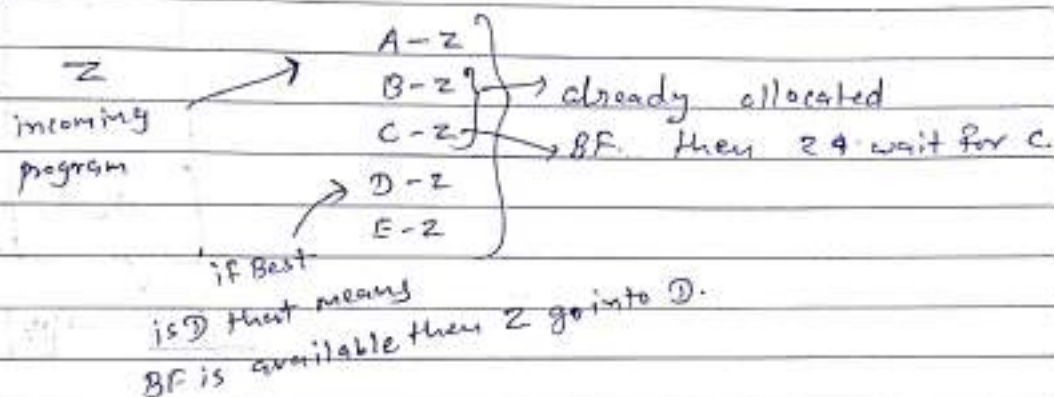 Z
incoming
program
A - Z
B - Z
C - Z
D - Z
E - Z
already allocated
BF. then Z wait for C.
if Best
is D that means
BF is available then Z go into D.